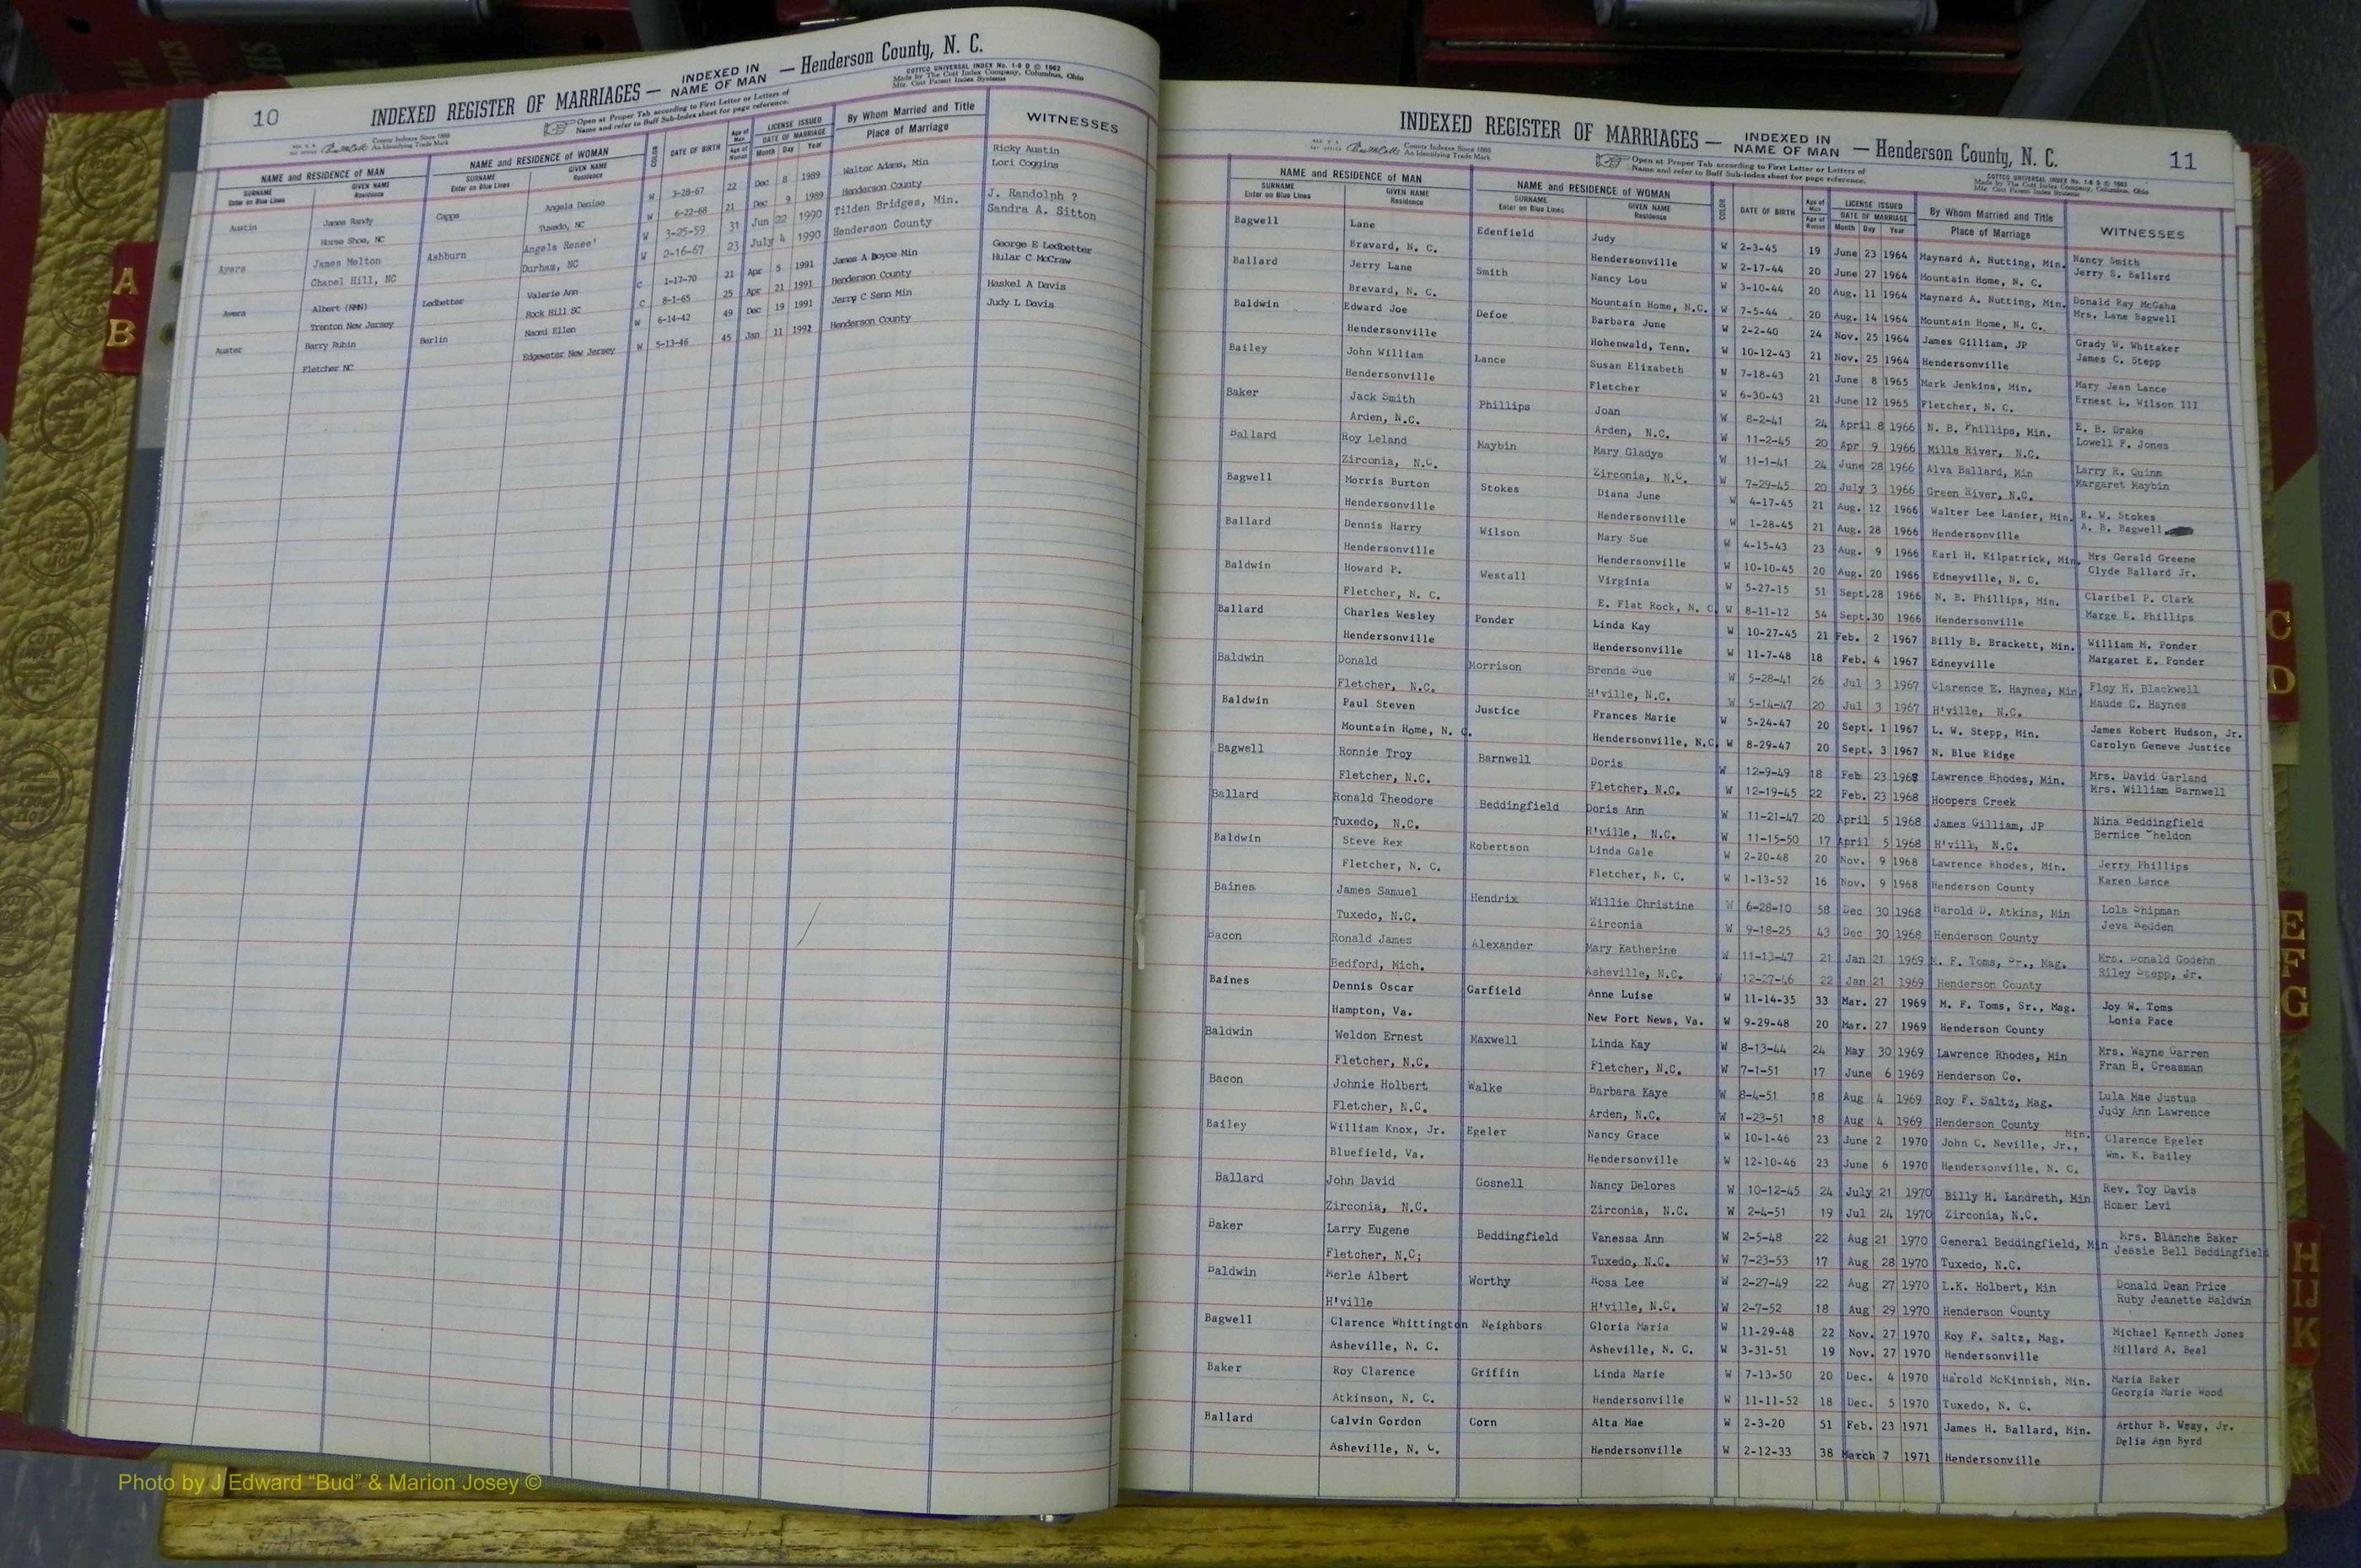 10
INDEXED REGISTER OF MARRIAGES — INDEXED IN NAME OF MAN — Henderson County, N. C.
COTTCO UNIVERSAL INDEX No. 1-8 D © 1962
Made by The Cott Index Company, Columbus, Ohio
Open at Proper Tab according to First Letter or Letters of
Name and refer to Buff Sub-Index sheet for page reference.
County Indexes Since 1888
An Identifying Trade Mark
NAME and RESIDENCE OF MAN NAME and RESIDENCE OF WOMAN COLOR DATE OF BIRTH Age of Man LICENSE ISSUED By Whom Married and Title WITNESSES
SURNAME GIVEN NAME SURNAME GIVEN NAME Age of Woman DATE OF MARRIAGE Place of Marriage
Enter on Blue Lines Residence Enter on Blue Lines Residence Month Day Year
Austin James Randy Capps Angela Denise W 3-28-67 22 Dec 8 1989 Walter Adams, Min Ricky Austin
Horse Shoe, NC Tuxedo, NC W 6-22-68 21 Dec 9 1989 Henderson County Lori Coggins
Ayers James Melton Ashburn Angela Renee' W 3-25-59 31 Jun 22 1990 Tilden Bridges, Min. J. Randolph ?
Chapel Hill, NC Durham, NC W 2-16-67 23 July 4 1990 Henderson County Sandra A. Sitton
Avera Albert (NMN) Ledbetter Valerie Ann C 1-17-70 21 Apr 5 1991 James A Boyce Min George E Ledbetter
Trenton New Jersey Rock Hill SC C 8-1-65 25 Apr 21 1991 Henderson County Hular C McCraw
Auster Barry Rubin Berlin Naomi Ellen W 6-14-42 49 Dec 19 1991 Jerry C Senn Min Haskel A Davis
Fletcher NC Edgewater New Jersey W 5-13-46 45 Jan 11 1992 Henderson County Judy L Davis
INDEXED REGISTER OF MARRIAGES — INDEXED IN NAME OF MAN — Henderson County, N. C.
11
Open at Proper Tab according to First Letter or Letters of
Name and refer to Buff Sub-Index sheet for page reference.
NAME and RESIDENCE OF MAN NAME and RESIDENCE OF WOMAN COLOR DATE OF BIRTH Age of Man LICENSE ISSUED By Whom Married and Title WITNESSES
SURNAME GIVEN NAME SURNAME GIVEN NAME Age of Woman DATE OF MARRIAGE Place of Marriage
Enter on Blue Lines Residence Enter on Blue Lines Residence Month Day Year
Bagwell Lane Edenfield Judy W 2-3-45 19 June 23 1964 Maynard A. Nutting, Min. Nancy Smith
Bravard, N. C. Hendersonville W 2-17-44 20 June 27 1964 Mountain Home, N. C. Jerry S. Ballard
Ballard Jerry Lane Smith Nancy Lou W 3-10-44 20 Aug. 11 1964 Maynard A. Nutting, Min. Donald Ray McGaha
Brevard, N. C. Mountain Home, N.C. W 7-5-44 20 Aug. 14 1964 Mountain Home, N. C. Mrs. Lane Bagwell
Baldwin Edward Joe Defoe Barbara June W 2-2-40 24 Nov. 25 1964 James Gilliam, JP Grady W. Whitaker
Hendersonville Hohenwald, Tenn. W 10-12-43 21 Nov. 25 1964 Hendersonville James C. Stepp
Bailey John William Lance Susan Elizabeth W 7-18-43 21 June 8 1965 Mark Jenkins, Min. Mary Jean Lance
Hendersonville Fletcher W 6-30-43 21 June 12 1965 Fletcher, N. C. Ernest L. Wilson III
Baker Jack Smith Phillips Joan W 8-2-41 24 April 8 1966 N. B. Phillips, Min. E. B. Drake
Arden, N.C. Arden, N.C. W 11-2-45 20 Apr 9 1966 Mills River, N.C. Lowell F. Jones
Ballard Roy Leland Maybin Mary Gladys W 11-1-41 24 June 28 1966 Alva Ballard, Min Larry R. Quinn
Zirconia, N.C. Zirconia, N.C. W 7-29-45 20 July 3 1966 Green River, N.C. Margaret Maybin
Bagwell Morris Burton Stokes Diana June W 4-17-45 21 Aug. 12 1966 Walter Lee Lanier, Min. R. W. Stokes
Hendersonville Hendersonville W 1-28-45 21 Aug. 28 1966 Hendersonville A. B. Bagwell
Ballard Dennis Harry Wilson Mary Sue W 4-15-43 23 Aug. 9 1966 Earl H. Kilpatrick, Min. Mrs Gerald Greene
Hendersonville Hendersonville W 10-10-45 20 Aug. 20 1966 Edneyville, N. C. Clyde Ballard Jr.
Baldwin Howard P. Westall Virginia W 5-27-15 51 Sept.28 1966 N. B. Phillips, Min. Claribel P. Clark
Fletcher, N. C. E. Flat Rock, N. C. W 8-11-12 54 Sept.30 1966 Hendersonville Marge E. Phillips
Ballard Charles Wesley Ponder Linda Kay W 10-27-45 21 Feb. 2 1967 Billy B. Brackett, Min. William M. Ponder
Hendersonville Hendersonville W 11-7-48 18 Feb. 4 1967 Edneyville Margaret E. Ponder
Baldwin Donald Morrison Brenda Sue W 5-28-41 26 Jul 3 1967 Clarence E. Haynes, Min Floy H. Blackwell
Fletcher, N.C. H'ville, N.C. W 5-14-47 20 Jul 3 1967 H'ville, N.C. Maude C. Haynes
Baldwin Paul Steven Justice Frances Marie W 5-24-47 20 Sept. 1 1967 L. W. Stepp, Min. James Robert Hudson, Jr.
Mountain Home, N. C. Hendersonville, N.C. W 8-29-47 20 Sept. 3 1967 N. Blue Ridge Carolyn Geneve Justice
Bagwell Ronnie Troy Barnwell Doris W 12-9-49 18 Feb 23 1968 Lawrence Rhodes, Min. Mrs. David Garland
Fletcher, N.C. Fletcher, N.C. W 12-19-45 22 Feb. 23 1968 Hoopers Creek Mrs. William Barnwell
Ballard Ronald Theodore Beddingfield Doris Ann W 11-21-47 20 April 5 1968 James Gilliam, JP Nina Beddingfield
Tuxedo, N.C. H'ville, N.C. W 11-15-50 17 April 5 1968 H'vill, N.C. Bernice Sheldon
Baldwin Steve Rex Robertson Linda Gale W 2-20-48 20 Nov. 9 1968 Lawrence Rhodes, Min. Jerry Phillips
Fletcher, N. C. Fletcher, N. C. W 1-13-52 16 Nov. 9 1968 Henderson County Karen Lance
Baines James Samuel Hendrix Willie Christine W 6-28-10 58 Dec 30 1968 Harold D. Atkins, Min Lola Shipman
Tuxedo, N.C. Zirconia W 9-18-25 43 Dec 30 1968 Henderson County Jeva Redden
Bacon Ronald James Alexander Mary Katherine W 11-13-47 21 Jan 21 1969 M. F. Toms, Sr., Mag. Mrs. Donald Godehn
Bedford, Mich. Asheville, N.C. W 12-27-46 22 Jan 21 1969 Henderson County Riley Stepp, Jr.
Baines Dennis Oscar Garfield Anne Luise W 11-14-35 33 Mar. 27 1969 M. F. Toms, Sr., Mag. Joy W. Toms
Hampton, Va. New Port News, Va. W 9-29-48 20 Mar. 27 1969 Henderson County Lonia Pace
Baldwin Weldon Ernest Maxwell Linda Kay W 8-13-44 24 May 30 1969 Lawrence Rhodes, Min Mrs. Wayne Garren
Fletcher, N.C. Fletcher, N.C. W 7-1-51 17 June 6 1969 Henderson Co. Fran B. Creasman
Bacon Johnie Holbert Walke Barbara Kaye W 8-4-51 18 Aug 4 1969 Roy F. Saltz, Mag. Lula Mae Justus
Fletcher, N.C. Arden, N.C. W 1-23-51 18 Aug 4 1969 Henderson County Judy Ann Lawrence
Bailey William Knox, Jr. Egeler Nancy Grace W 10-1-46 23 June 2 1970 John C. Neville, Jr., Min. Clarence Egeler
Bluefield, Va. Hendersonville W 12-10-46 23 June 6 1970 Hendersonville, N. C. Wm. K. Bailey
Ballard John David Gosnell Nancy Delores W 10-12-45 24 July 21 1970 Billy H. Landreth, Min Rev. Toy Davis
Zirconia, N.C. Zirconia, N.C. W 2-4-51 19 Jul 24 1970 Zirconia, N.C. Homer Levi
Baker Larry Eugene Beddingfield Vanessa Ann W 2-5-48 22 Aug 21 1970 General Beddingfield, Min Mrs. Blanche Baker
Fletcher, N.C; Tuxedo, N.C. W 7-23-53 17 Aug 28 1970 Tuxedo, N.C. Jessie Bell Beddingfield
Baldwin Merle Albert Worthy Rosa Lee W 2-27-49 22 Aug 27 1970 L.K. Holbert, Min Donald Dean Price
H'ville H'ville, N.C. W 2-7-52 18 Aug 29 1970 Henderson County Ruby Jeanette Baldwin
Bagwell Clarence Whittington Neighbors Gloria Maria W 11-29-48 22 Nov. 27 1970 Roy F. Saltz, Mag. Michael Kenneth Jones
Asheville, N. C. Asheville, N. C. W 3-31-51 19 Nov. 27 1970 Hendersonville Millard A. Beal
Baker Roy Clarence Griffin Linda Marie W 7-13-50 20 Dec. 4 1970 Harold McKinnish, Min. Maria Baker
Atkinson, N. C. Hendersonville W 11-11-52 18 Dec. 5 1970 Tuxedo, N. C. Georgia Marie Wood
Ballard Calvin Gordon Corn Alta Mae W 2-3-20 51 Feb. 23 1971 James H. Ballard, Min. Arthur B. Wray, Jr.
Asheville, N. C. Hendersonville W 2-12-33 38 March 7 1971 Hendersonville Delia Ann Byrd
A
B
C
D
E
F
G
H
IJ
K
Photo by J Edward “Bud” & Marion Josey ©